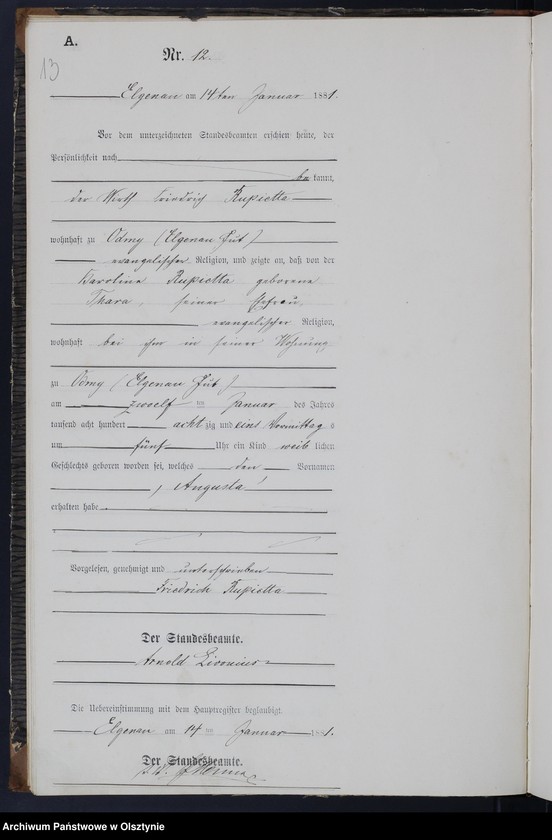 A.
13
Nr. 12.
Elgenau am 14ten Januar 1881.
Vor dem unterzeichneten Standesbeamten erschien heute, der
Persönlichkeit nach
be kannt,
der Wirth Friedrich Rupietta
wohnhaft zu Odmy (Elgenau Gut)
evangelischer Religion, und zeigte an, daß von der
Karoline Rupietta geborene
Thara, seiner Ehefrau,
evangelischer Religion,
wohnhaft bei ihm in seiner Wohnung
zu Odmy (Elgenau Gut)
am zwoelf ten Januar des Jahres
tausend acht hundert acht zig und eins Vormittag s
um fünf Uhr ein Kind weib lichen
Geschlechts geboren worden sei, welches den Vornamen
"Augusta"
erhalten habe
Vorgelesen, genehmigt und unterschrieben
Friedrich Rupietta
Der Standesbeamte.
Arnold
Die Uebereinstimmung mit dem Hauptregister beglaubigt
Elgenau am 14 ten Januar 1881.
Der Standesbeamte.
Archiwum Państwowe w Olsztynie